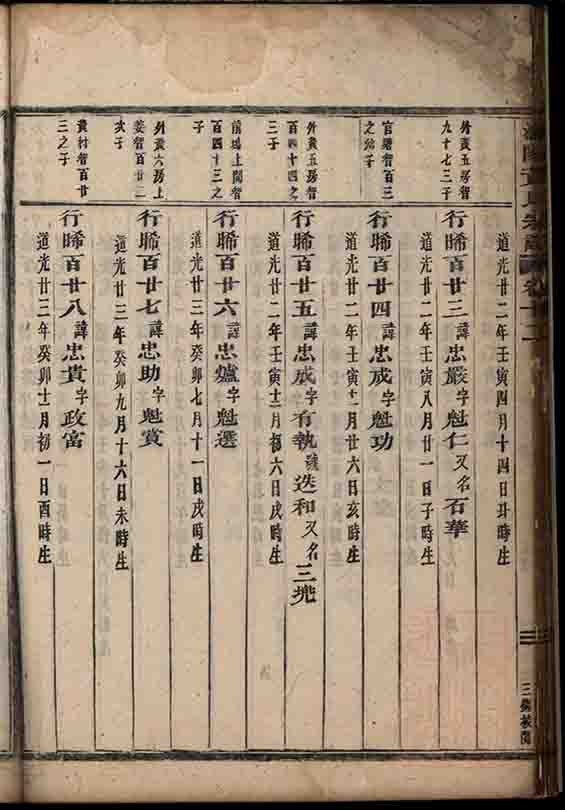 黃氏宗
卷十二
道光廿二年壬寅四月十四日丑時生
外黃五房智
九十七三子
行晞百廿三諱忠嚴字魁仁又名石華
道光廿二年壬寅八月廿一日子時生
官智百三
之子
行晞百廿四諱忠成字魁功
道光廿二年壬寅十一月廿六日亥時生
外黃五房智
百四十四之
三子
行晞百廿五諱忠成字有執號迭和又名三兠
道光廿二年壬寅十二月初六日戌時生
前上間智
百四十三之
子
行晞百廿六諱忠爐字魁選
道光廿三年癸卯七月十一日戌時生
外黃六房上
姜智百廿二
次子
行晞百廿七諱忠助字魁賞
道光廿三年癸卯九月十六日未時生
黃村智百廿
三之子
行晞百廿八諱忠貴字政富
道光廿三年癸卯十二月初一日酉時生